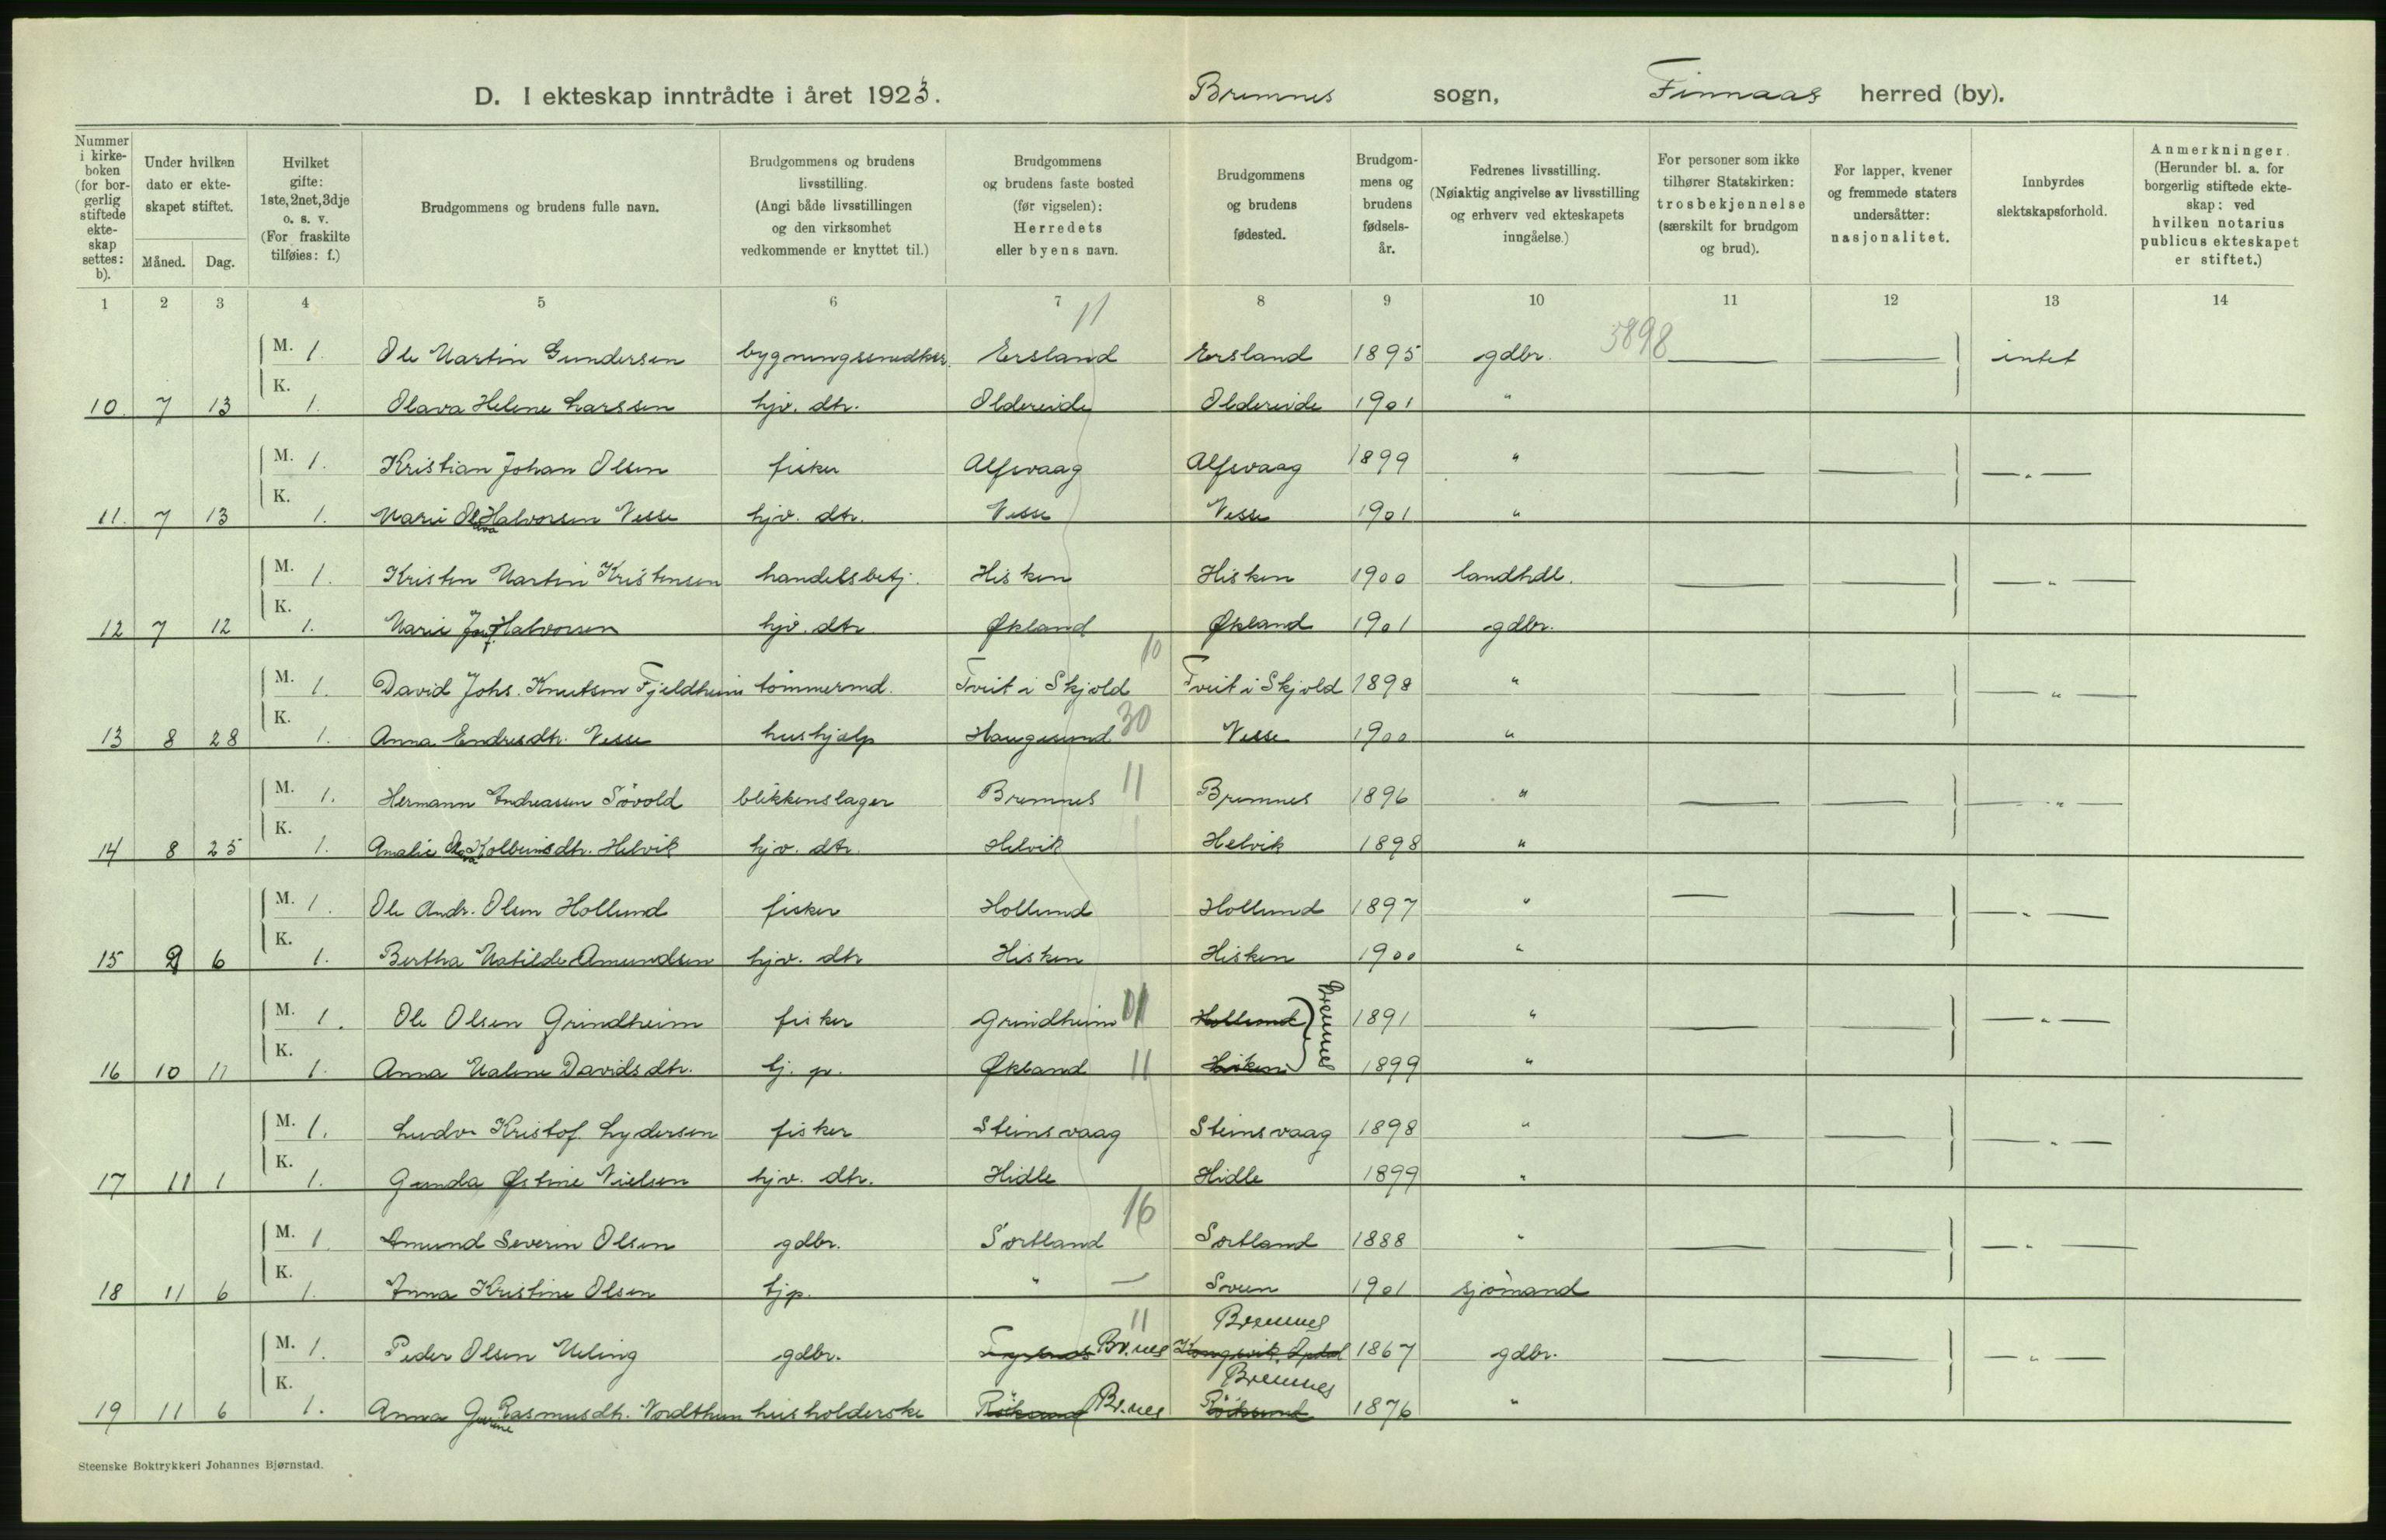 D. I ekteskap inntrådte i året 1923. Bremnes sogn, Finnaas herred (by).
Nummer i kirke-boken (for bor-gerlig stiftede ekte-skap settes: b).
Under hvilken dato er ekte-skapet stiftet.
Måned. Dag.
Hvilket gifte: 1ste, 2net, 3dje o. s. v. (For fraskilte tilføies: f.)
Brudgommens og brudens fulle navn.
Brudgommens og brudens livsstilling. (Angi både livsstillingen og den virksomhet vedkommende er knyttet til.)
Brudgommens og brudens faste bosted (før vigselen): Herredets eller byens navn.
Brudgommens og brudens fødested.
Brudgom-mens og brudens fødsels-år.
Fedrenes livsstilling. (Nøiaktig angivelse av livsstilling og erhverv ved ekteskapets inngåelse.)
For personer som ikke tilhører Statskirken: trosbekjennelse (særskilt for brudgom og brud).
For lapper, kvener og fremmede staters undersåtter: nasjonalitet.
Innbyrdes slektskapsforhold.
Anmerkninger. (Herunder bl. a. for borgerlig stiftede ekte-skap: ved hvilken notarius publicus ekteskapet er stiftet.)
1 2 3 4 5 6 7 8 9 10 11 12 13 14
11
M. 1. Ole Martin Gundersen bygningssnedker. Ersland Ersland 1895 gdbr. 5898 — — intet
K. 10. 7 13 1. Olava Helene Larssen hjv. dtr. Oldereide Oldereide 1901 "
M. 1. Kristian Johan Olsen fisker Alfsvaag Alfsvaag 1899 " — — — " —
K. 11. 7 13 1. Marie Olava Halvorsen Vesse hjv. dtr. Vesse Vesse 1901 "
M. 1. Kristen Martin Kristensen handelsbetj. Hisken Hisken 1900 landhdl. — — — " —
K. 12 7 12 1. Marie Halvorsen hjv. dtr. Økland Økland 1901 gdbr.
10
M. 1. David Johs. Knutsen Fjeldheim tømmermd. Tveit i Skjold Tveit i Skjold 1898 " — — — " —
K. 13 8 28 1. Anna Endresdtr. Vesse hushjælp Haugesund 30 Vesse 1900 "
M. 1. Hermann Andreassen Søvold blikkenslager Bremnes 11 Bremnes 1896 " — — — " —
K. 14 8 25 1. Amalie Olava Kolbeinsdtr. Helvik hjv. dtr. Helvik Helvik 1898 "
M. 1. Ole Andr. Olsen Hollund fisker Hollund Hollund 1897 " — — — " —
K. 15 9 6 1. Bertha Matilde Amundsen hjv. dtr Hisken Hisken 1900 "
M. 1. Ole Olsen Grindheim fisker Grindheim 11 Hollund Bremnes 1891 " — — — " —
K. 16 10 11 1. Anna Malene Davidsdtr. tj. p. Økland 11 Hisken 1899 "
M. 1. Ludv. Kristof. Lydersen fisker Steinsvaag Steinsvaag 1898 " — — — " —
K. 17 11 1 1. Gunda Østine Nielsen hjv. dtr. Hidle Hidle 1899 "
16
M. 1. Amund Severin Olsen gdbr. Sortland Sortland 1888 " — — — " —
K. 18 11 6 1. Anna Kristine Olsen tjp. " — Sveen 1901 sjømand
11 Bremnes
M. 1. Peder Olsen Meling gdbr. Br.nes 1867 gdbr. — — — " —
Bremnes
K. 19 11 6 1. Anna Gurine Rasmusdtr. Nordthun husholderske Br.nes Røksund 1876 "
Steenske Boktrykkeri Johannes Bjørnstad.